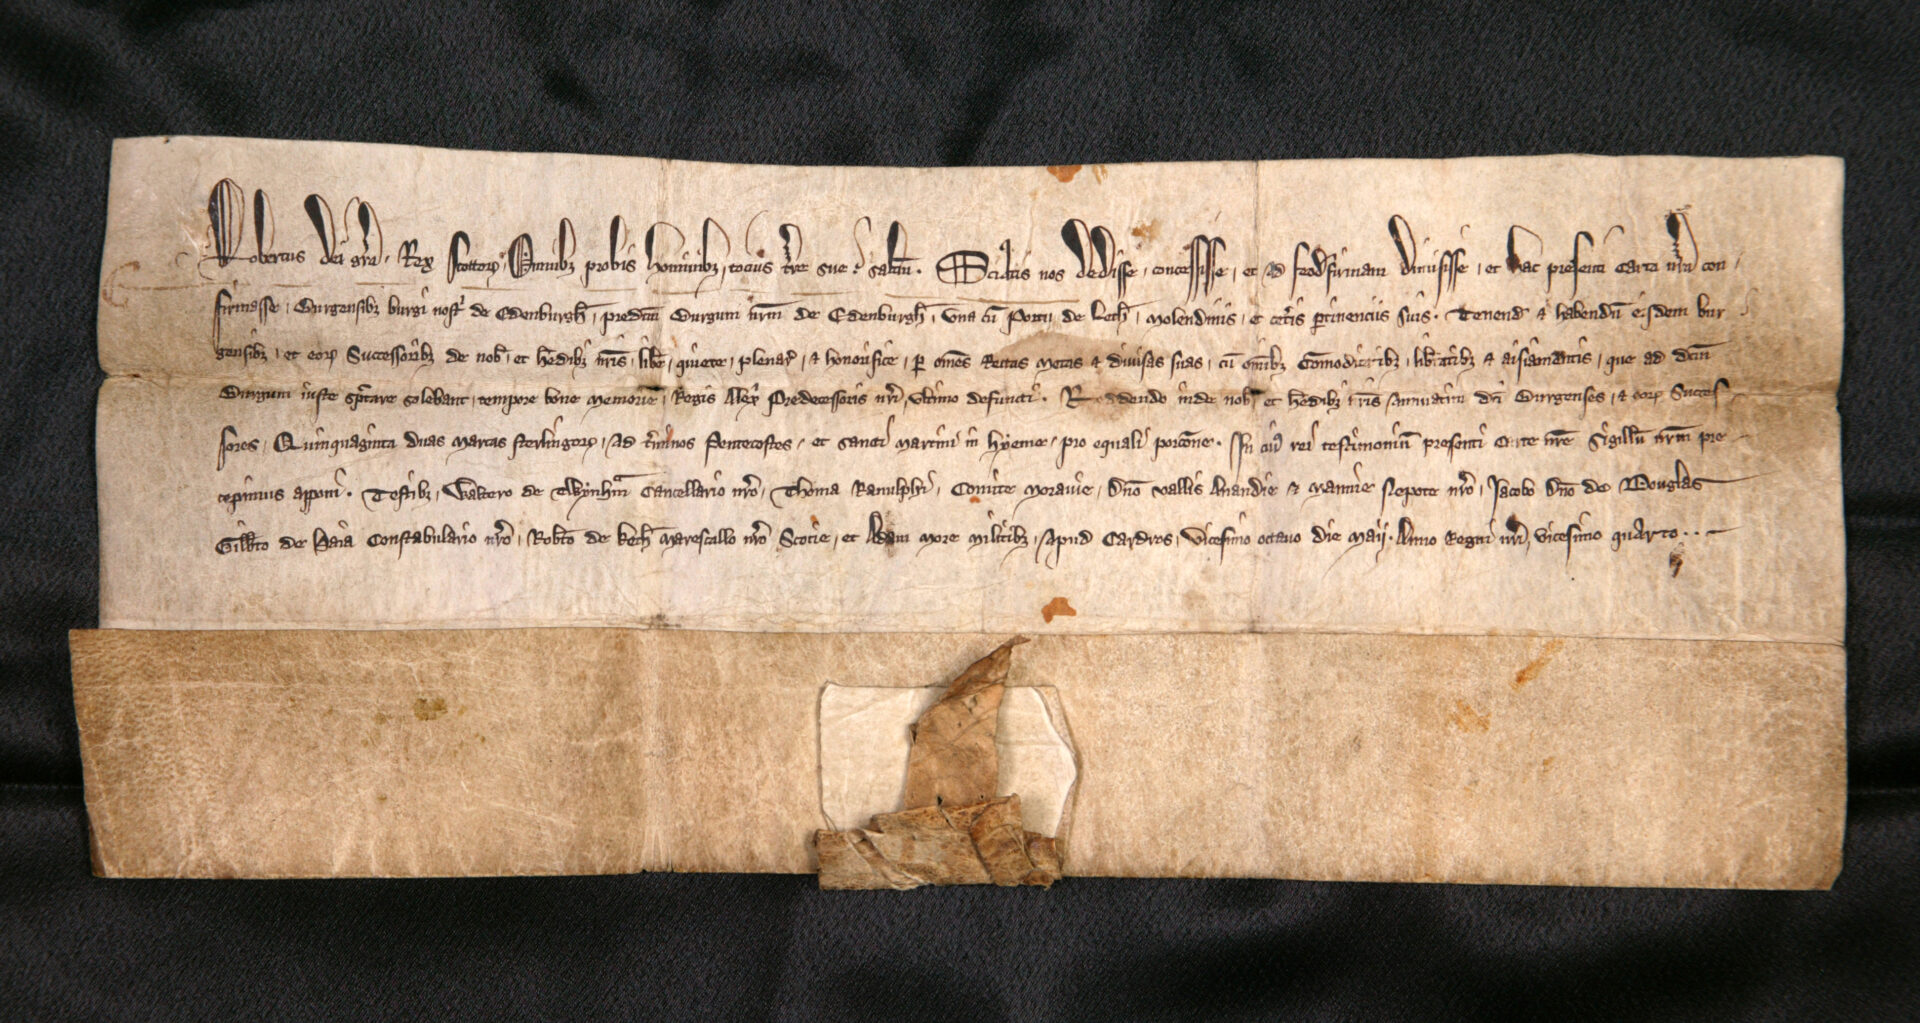 Robertus dei gra Rex Scottorꝝ Omnibꝫ probis hominibꝫ tocius tre sue saltm. Sciatis nos dedisse, concessisse, et ad feodfirmam dimisisse, et hac presenti carta nra con
firmasse, Burgensibꝫ burgi nostri de Edenburgh, predcm Burgum nrm de Edenburgh, una cu Portu de Leth, Molendinis, et cetis ptinenciis suis. Tenend & habend eisdem bur
gensibꝫ, et eorꝝ Successoribꝫ de nob, et hedibꝫ nris, libe, quiete, plenar, & honorifice, p omes Rectas Metas & divisas suas, cu omibꝫ comoditatibꝫ, libtatibꝫ & aisiamentis, que ad dcm
Burgum iuste sptare solebant, tempore bone memorie, Regis Alexi Predecessoris nri, ultimo defuncti. Reddendo inde nob et hedibꝫ nris Annuatim dci Burgenses, & eorꝝ Succes
sores, Quinquaginta duas Marcas sterlingorꝝ, ad tminos Pentecostes, et sancti Martini in hyeme, pro equali porcone. In cuiꝰ rei testimoniu presenti carte nre Sigillu nrm pre
cepimus apponi. Testibꝫ, Waltero de Twynham Cancellario nro, Thoma Ranulphi, Comite Moravie, dno vallis Anandie & Mannie Nepote nro, Jacobo dno de Douglas
Gilbto de Haia Constabulario nro, Robto de Keth Marescallo nro Scocie, et Adam More militibꝫ, Apud Cardros, vicesimo octavo die Maij. Anno Regni nri, vicesimo quarto..